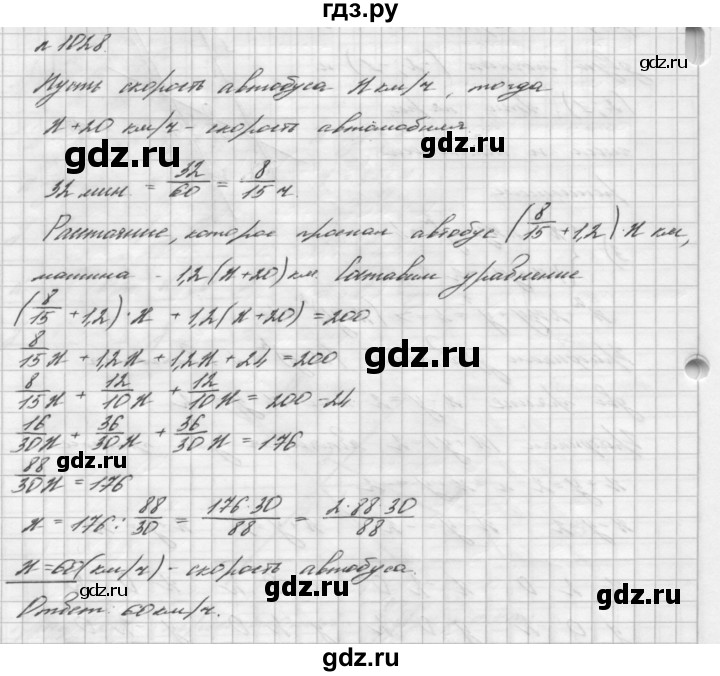 гдз.ру
№ 1028.
gdz.ru
Пусть скорость автобуса x км/ч, тогда
x+20 км/ч - скорость автомобиля.
gdz.ru gdz.ru
32 мин. = 32/60 = 8/15 ч.
Расстояние, которое проехал автобус (8/15 + 1,2)·x км,
машина - 1,2(x+20) км. Составим уравнение
(8/15 + 1,2)·x + 1,2(x+20) = 200
8/15 x + 1,2x + 1,2x + 24 = 200
gdz.ru
8/15 x + 12/10 x + 12/10 x = 200-24
16/30 x + 36/30 x + 36/30 x = 176
gdz.ru
88/30 x = 176
x = 176 : 88/30 = 176·30/88 = 2·88·30/88
gdz.ru
x = 60 (км/ч) - скорость автобуса.
gdz.ru gdz.ru gdz.ru
Ответ: 60 км/ч.
gdz.ru